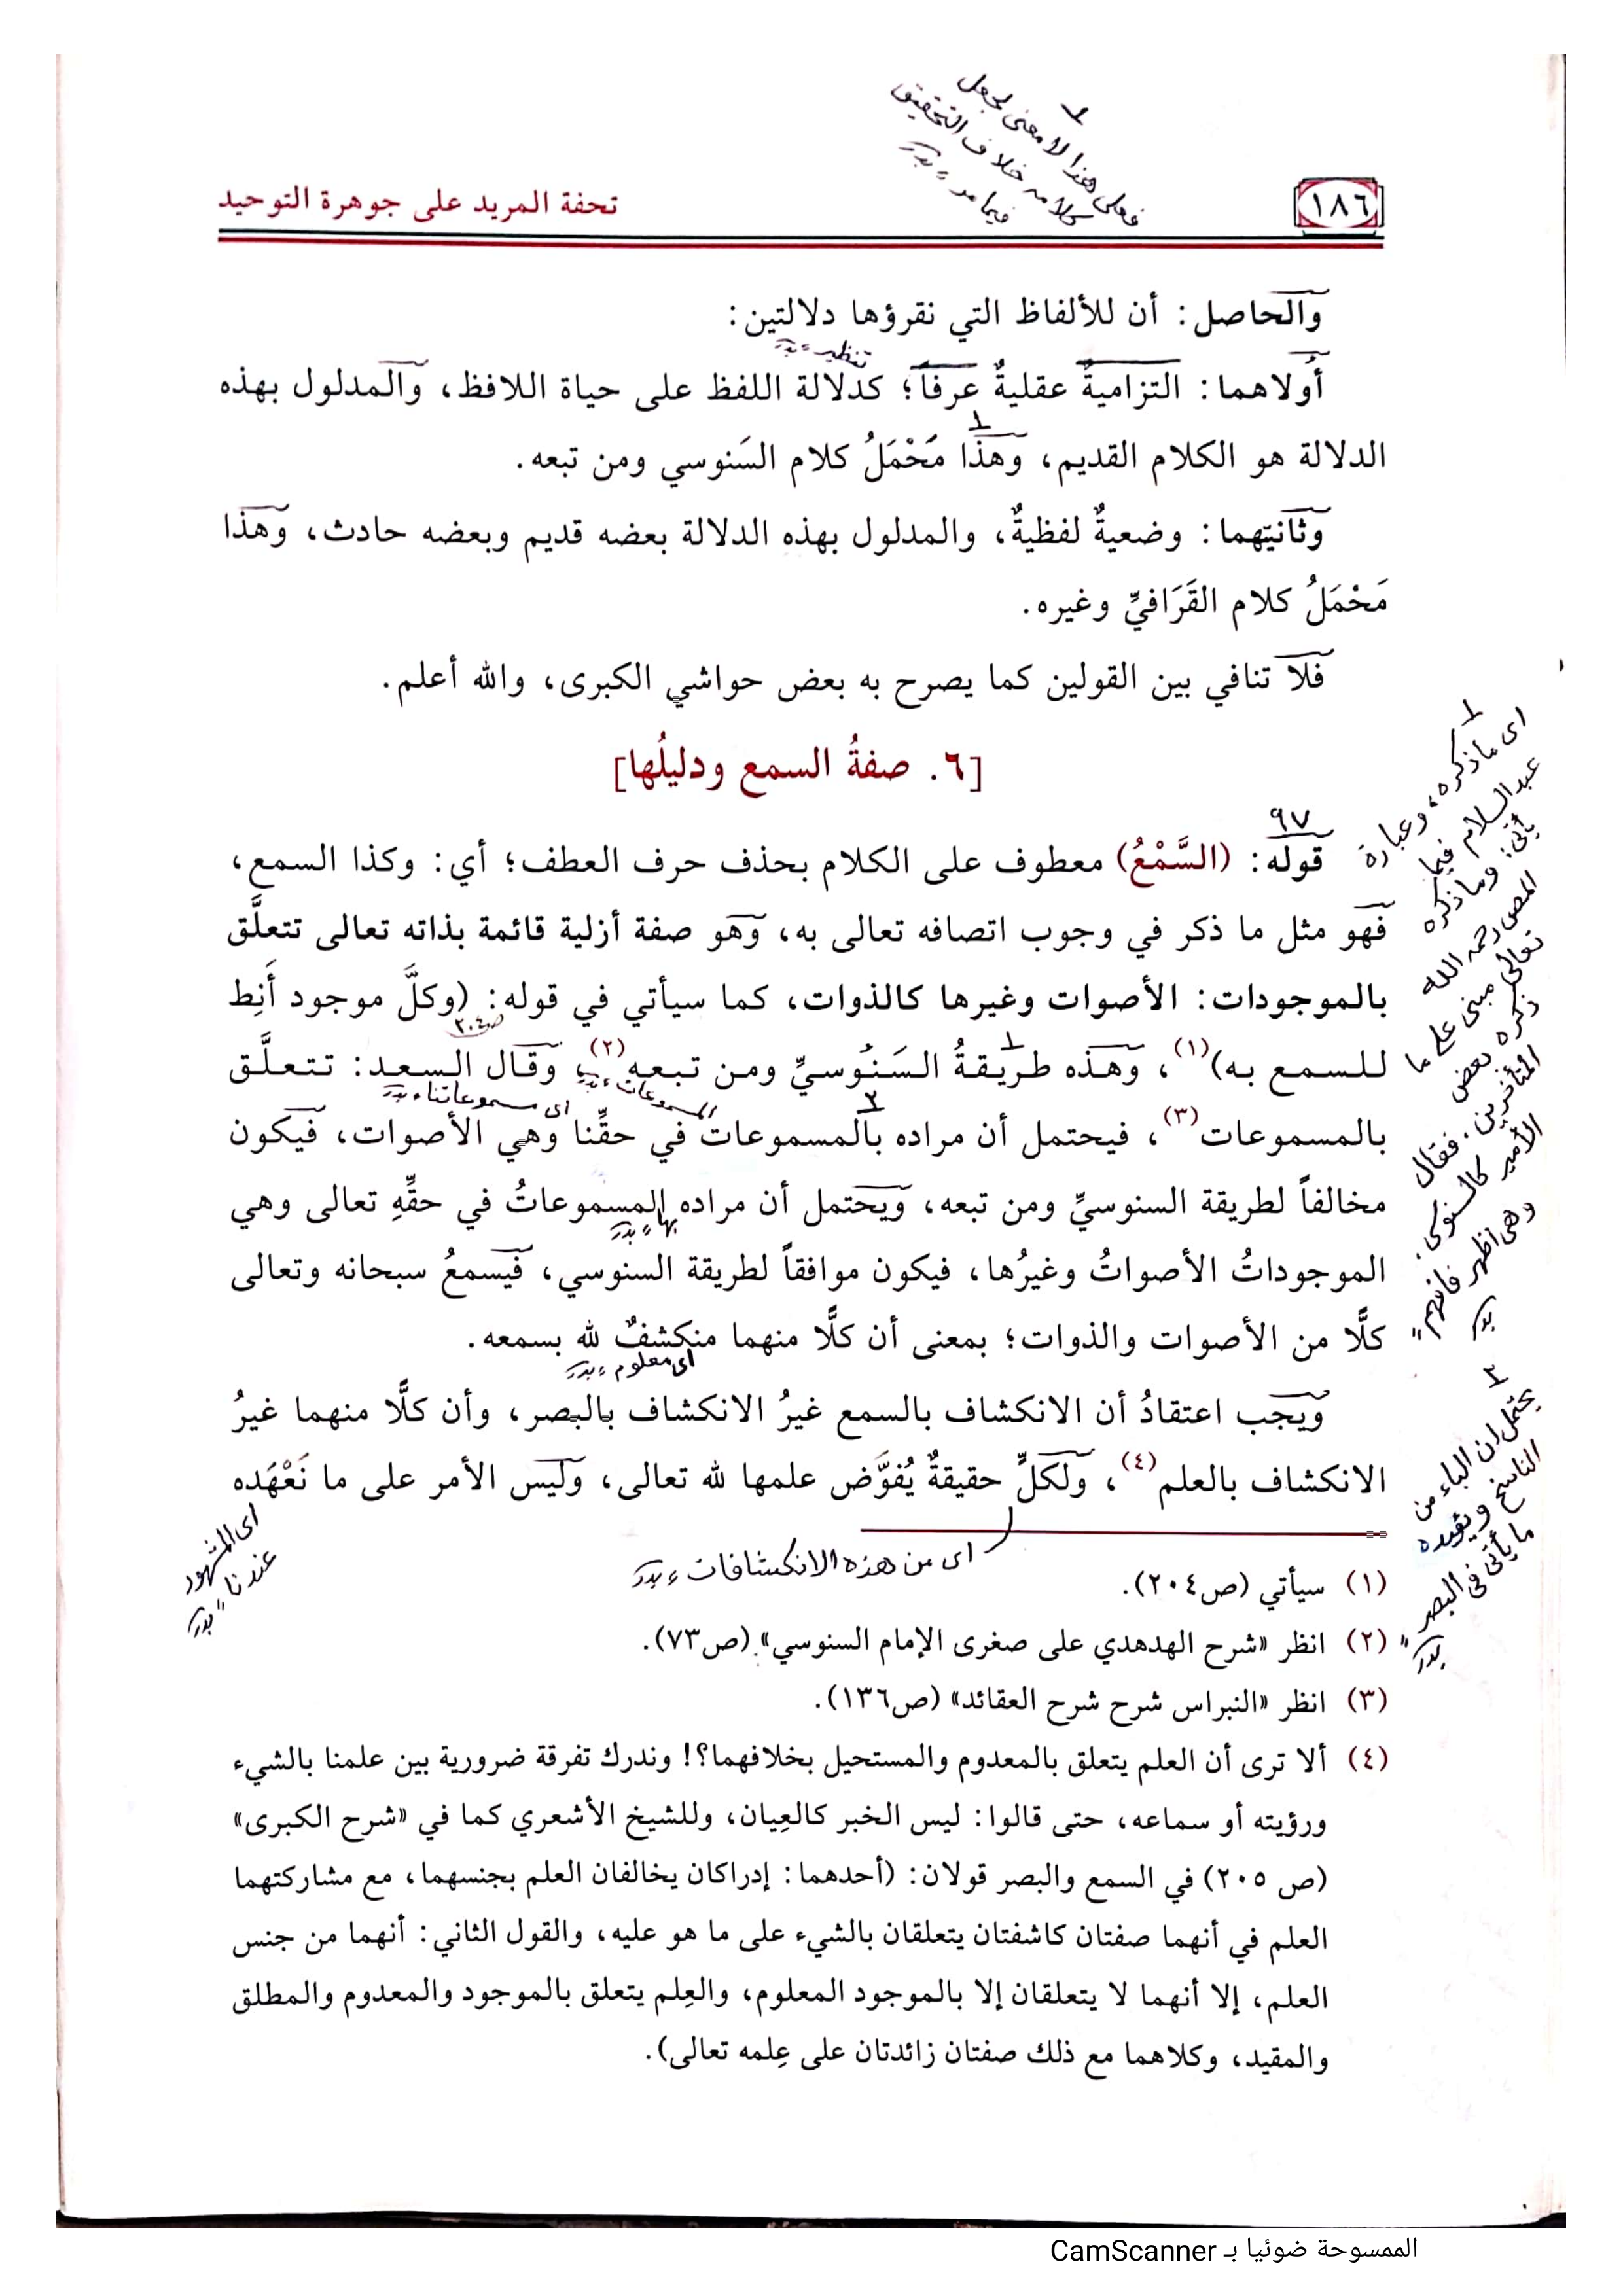 ١
فعلى هذا لا معنى لجعل
كلامه خلاف التحقيق
فيما مر ؞ بدر
١٨٦
تحفة المريد على جوهرة التوحيد
والحاصل: أن للألفاظ التي نقرؤها دلالتين:
تنظير ؞ بدر
أولاهما: التزاميةٌ عقليةٌ عرفاً؛ كدلالة اللفظ على حياة اللافظ، والمدلول بهذه
١
الدلالة هو الكلام القديم، وهذا مَحْمَلُ كلام السَنوسي ومن تبعه.
وثانيتهما: وضعيةٌ لفظيةٌ، والمدلول بهذه الدلالة بعضه قديم وبعضه حادث، وهذا
مَحْمَلُ كلام القَرَافيِّ وغيره.
فلا تنافي بين القولين كما يصرح به بعض حواشي الكبرى، والله أعلم.
[٦. صفةُ السمع ودليلُها]
٩٧
قوله: (السَّمْعُ) معطوف على الكلام بحذف حرف العطف؛ أي: وكذا السمع،
فهو مثل ما ذكر في وجوب اتصافه تعالى به، وهو صفة أزلية قائمة بذاته تعالى تتعلَّق
بالموجودات: الأصوات وغيرها كالذوات، كما سيأتي في قوله: (وكلَّ موجود أَنِط
ص٢٠٤
للسمع به)(١)، وهذه طريقةُ السَنُوسيِّ ومن تبعه(٢)، وقال السعد: تتعلَّق
المسموعات ؞ بدر
اى مسموعاتنا ؞ بدر
بالمسموعات(٣)، فيحتمل أن مراده بالمسموعات في حقِّنا وهي الأصوات، فيكون
مخالفاً لطريقة السنوسيِّ ومن تبعه، ويحتمل أن مراده المسموعاتُ في حقِّهِ تعالى وهي
بها ؞ بدر
الموجوداتُ الأصواتُ وغيرُها، فيكون موافقاً لطريقة السنوسي، فيسمعُ سبحانه وتعالى
كلًّا من الأصوات والذوات؛ بمعنى أن كلًّا منهما منكشفٌ لله بسمعه.
اى معلوم ؞ بدر
ويجب اعتقادُ أن الانكشاف بالسمع غيرُ الانكشاف بالبصر، وأن كلًّا منهما غيرُ
الانكشاف بالعلم(٤)، ولكلٍّ حقيقةٌ يُفوَّض علمها لله تعالى، وليس الأمر على ما نَعْهَده
اى من هذه الانكشافات ؞ بدر
اى المشهود
عندنا ؞ بدر
١
اى ما ذكره، وعبارة
عبدالسلام فيما
يأتى: وما ذكره
المص رحمه الله
تعالى مبنى على ما
ذكره بعض
المتأخرين. فقال
الأمير كالسنوسى.
وهى اظهر فافهم ؞
بدر
٣
يحتمل ان الباء من
الناسخ ويؤيده
ما يأتى فى البصر ؞
بدر
(١) سيأتي (ص٢٠٤).
(٢) انظر «شرح الهدهدي على صغرى الإمام السنوسي» (ص٧٣).
(٣) انظر «النبراس شرح شرح العقائد» (ص١٣٦).
(٤) ألا ترى أن العلم يتعلق بالمعدوم والمستحيل بخلافهما؟! وندرك تفرقة ضرورية بين علمنا بالشيء
ورؤيته أو سماعه، حتى قالوا: ليس الخبر كالعِيان، وللشيخ الأشعري كما في «شرح الكبرى»
(ص ٢٠٥) في السمع والبصر قولان: (أحدهما: إدراكان يخالفان العلم بجنسهما، مع مشاركتهما
العلم في أنهما صفتان كاشفتان يتعلقان بالشيء على ما هو عليه، والقول الثاني: أنهما من جنس
العلم، إلا أنهما لا يتعلقان إلا بالموجود المعلوم، والعِلم يتعلق بالموجود والمعدوم والمطلق
والمقيد، وكلاهما مع ذلك صفتان زائدتان على عِلمه تعالى).
الممسوحة ضوئيا بـ CamScanner